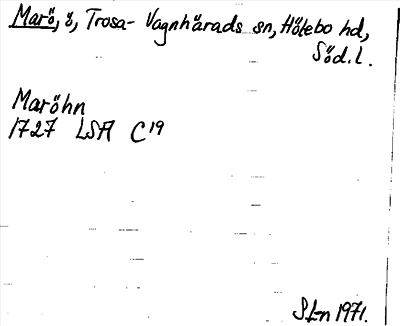 Marö, ö, Trosa-Vagnhärads sn, Hölebo hd,
Söd.l.
Maröhn
1727 LSA C19
SLn 1971.